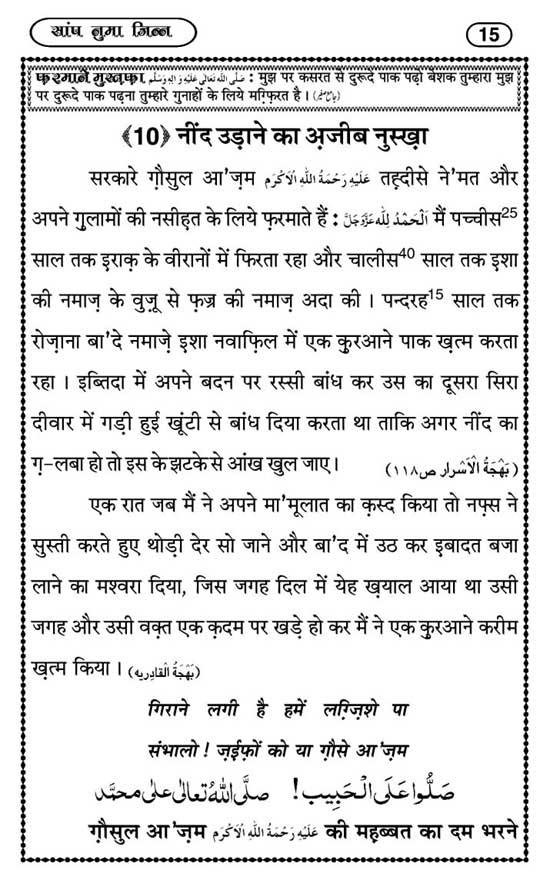 सांप नुमा जिन्न
15
फ़रमाने मुस्तफ़ा صَلَّی اللہ تَعَالٰی عَلَیْہِ وَاٰلِہٖ وَسَلَّم : मुझ पर कसरत से दुरूदे पाक पढ़ो बेशक तुम्हारा मुझ
पर दुरूदे पाक पढ़ना तुम्हारे गुनाहों के लिये मग़्फ़िरत है । (جامع صغیر)
﴾10﴿ नींद उड़ाने का अ़जीब नुस्ख़ा
सरकारे ग़ौसुल आ'ज़म عَلَیْہِ رَحْمَۃُ اللہِ الْاَکْرَم तह़दीसे ने'मत और
अपने ग़ुलामों की नसीह़त के लिये फ़रमाते हैं : اَلْحَمْدُ لِلّٰہ عَزَّوَجَلَّ मैं पच्चीस25
साल तक इराक़ के वीरानों में फिरता रहा और चालीस40 साल तक इशा
की नमाज़ के वुज़ू से फ़ज्र की नमाज़ अदा की । पन्दरह15 साल तक
रोज़ाना बा'दे नमाज़े इशा नवाफ़िल में एक क़ुरआने पाक ख़त्म करता
रहा । इब्तिदा में अपने बदन पर रस्सी बांध कर उस का दूसरा सिरा
दीवार में गड़ी हुई खूंटी से बांध दिया करता था ताकि अगर नींद का
ग़-लबा हो तो इस के झटके से आंख खुल जाए । (بَهْجَةُ الْاَسْرَار ص١١٨)
एक रात जब मैं ने अपने मा'मूलात का क़स्द किया तो नफ़्स ने
सुस्ती करते हुए थोड़ी देर सो जाने और बा'द में उठ कर इबादत बजा
लाने का मश्वरा दिया, जिस जगह दिल में येह ख़याल आया था उसी
जगह और उसी वक़्त एक क़दम पर खड़े हो कर मैं ने एक क़ुरआने करीम
ख़त्म किया । (بَهْجَةُ الْقَادِرِيه)
गिराने लगी है हमें लग़्ज़िशे पा
संभालो ! ज़ईफ़ों को या ग़ौसे आ'ज़म
صَلُّوا عَلَى الْحَبِيب ! صلَّى اللهُ تعالٰى على محمَّد
ग़ौसुल आ'ज़म عَلَیْہِ رَحْمَۃُ اللہِ الْاَکْرَم की मह़ब्बत का दम भरने